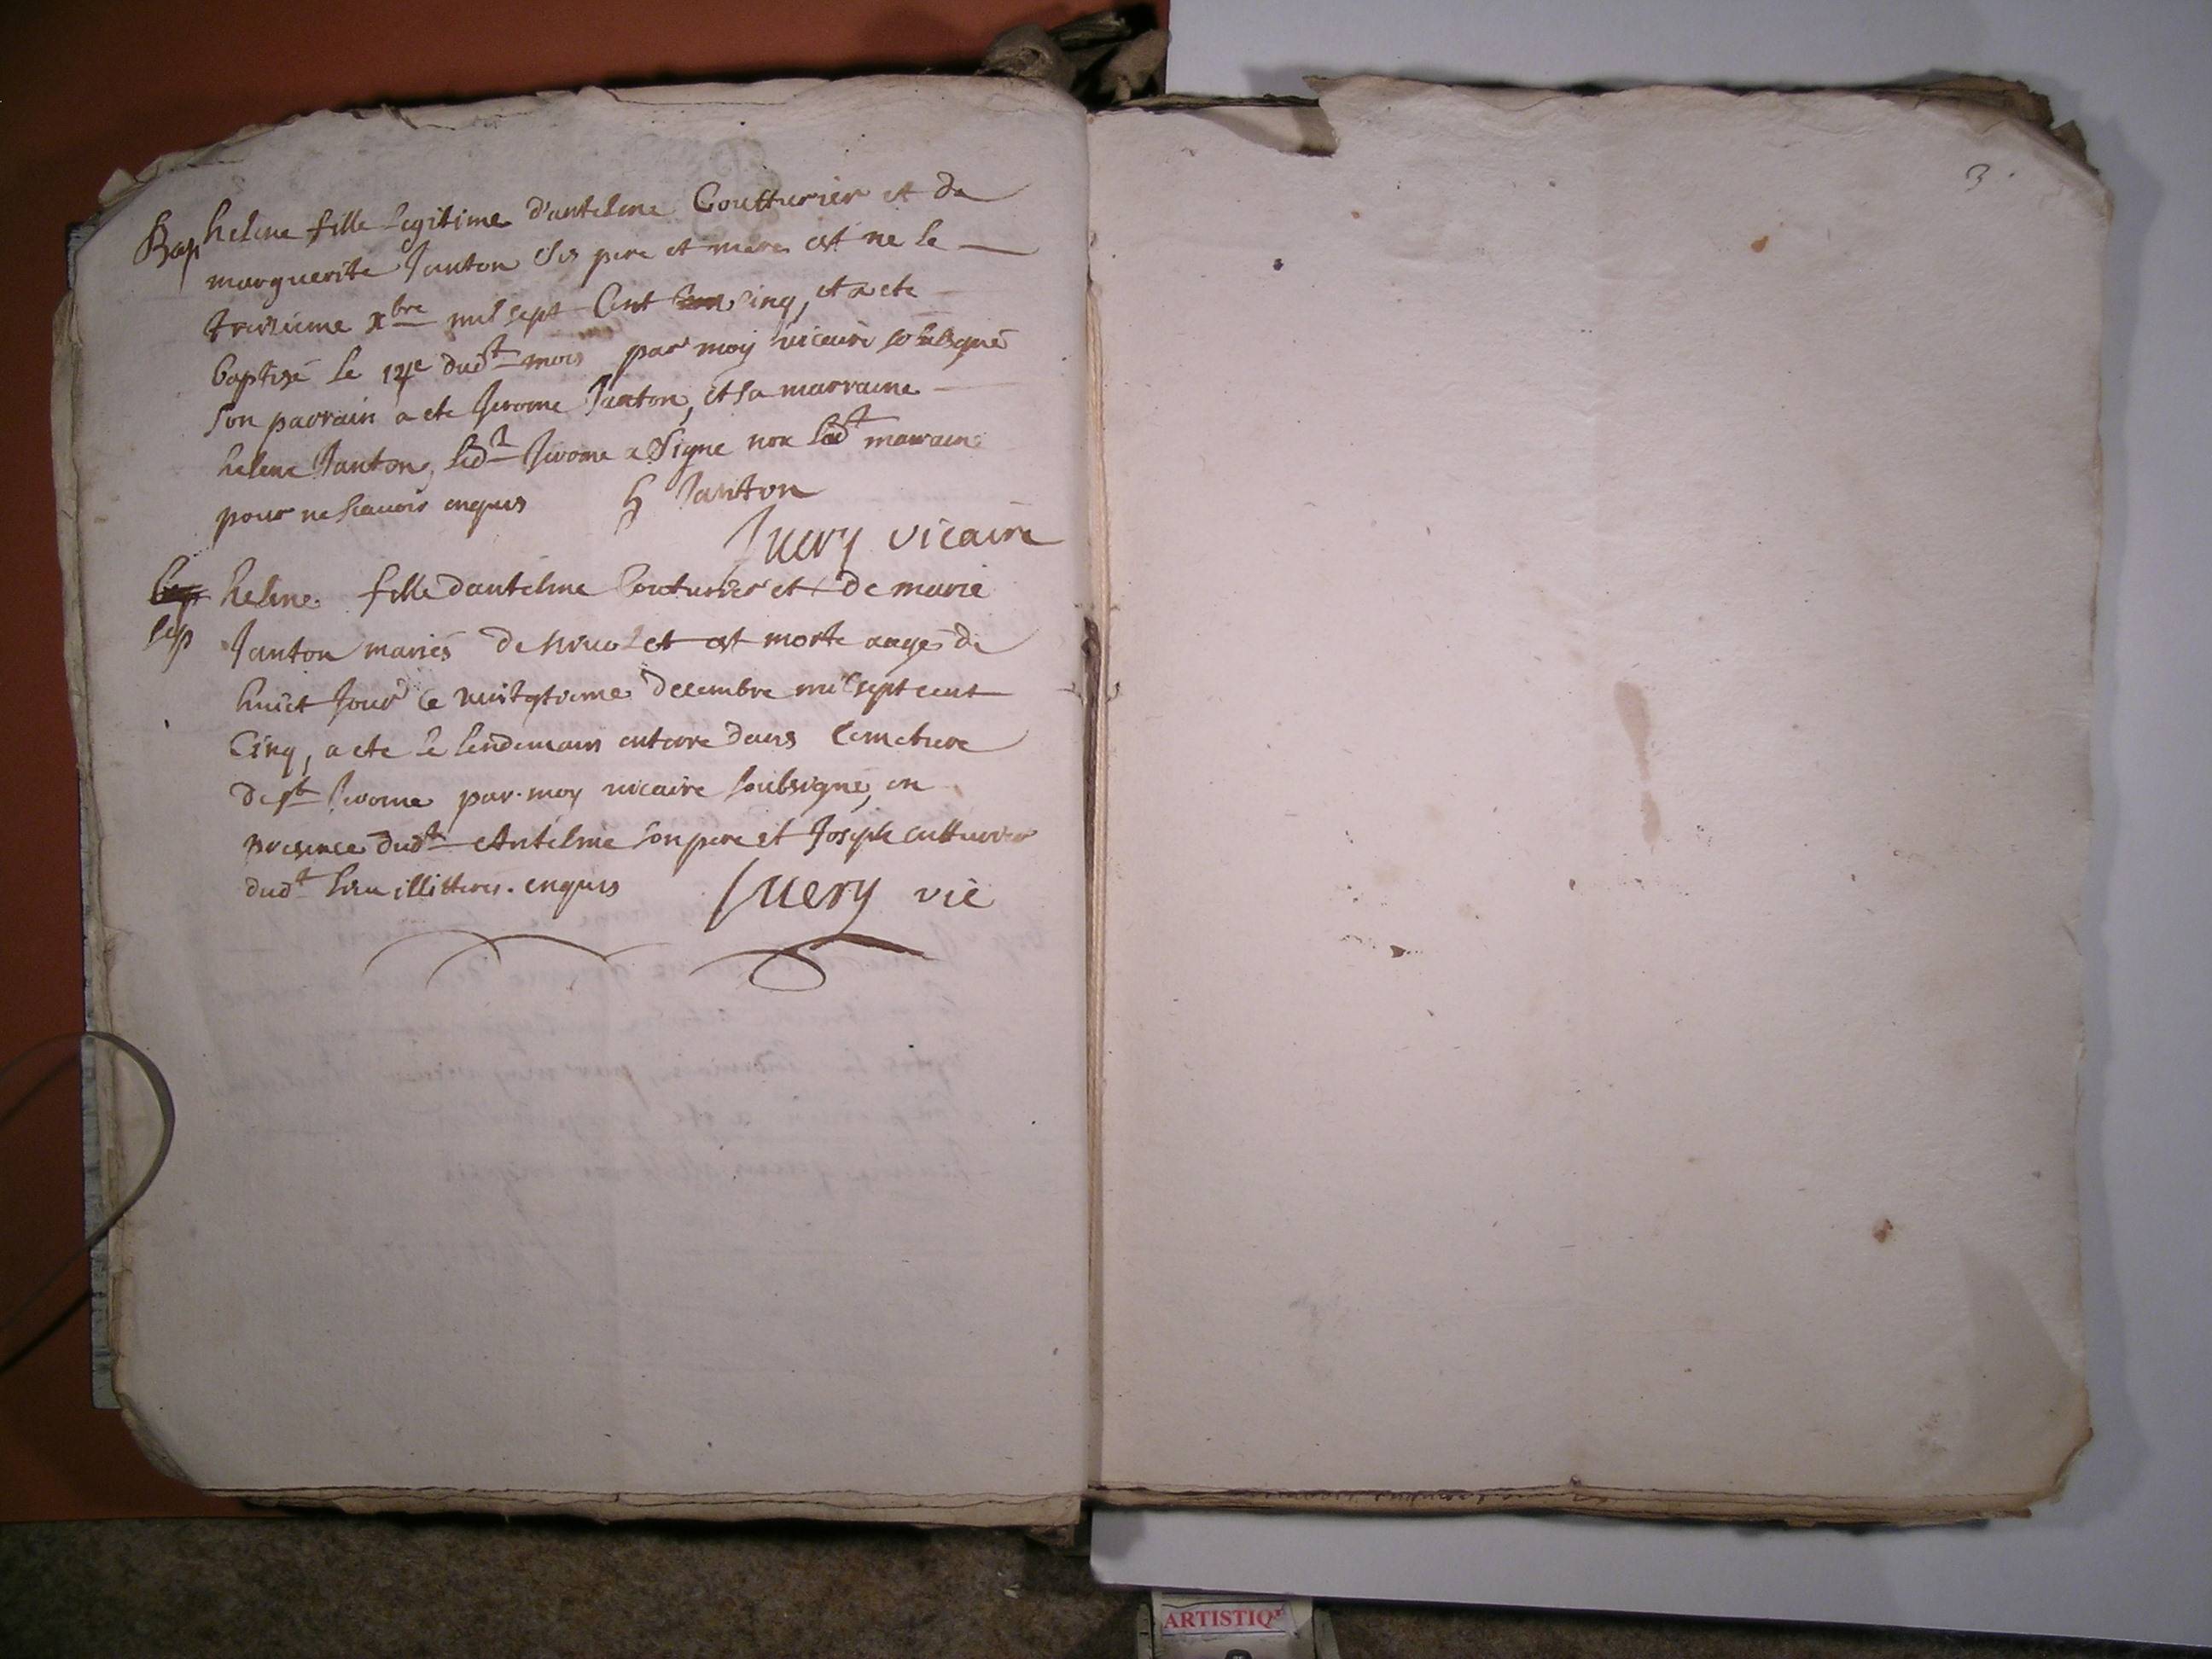 Bap helene fille legitime d'antelme Coutturier et de
marguerite Janton ses pere et mere est ne le
treizieme xbre mil sept cent cinq, et a ete
baptisé le 14e dudt mois par moy vicaire soubsigné
son parrain a ete Jerome Janton, et sa marraine
helene Janton, ledt Jerome a signe non ladt marraine
pour ne scavoir enquis Janton
Juery vicaire
helene fille dantelme Couturier et de marie
sep
Janton mariés de est morte aagé de
huict jour le decembre mil sept cent
Cinq, a ete le lendemain enterre dans cemetiere
de st Jerome par moy vicaire soubsigné, en
presence dudt Antelme son pere et Joseph cutturier
dudt lieu illitteres enquis Juery vic
3
ARTISTIQ